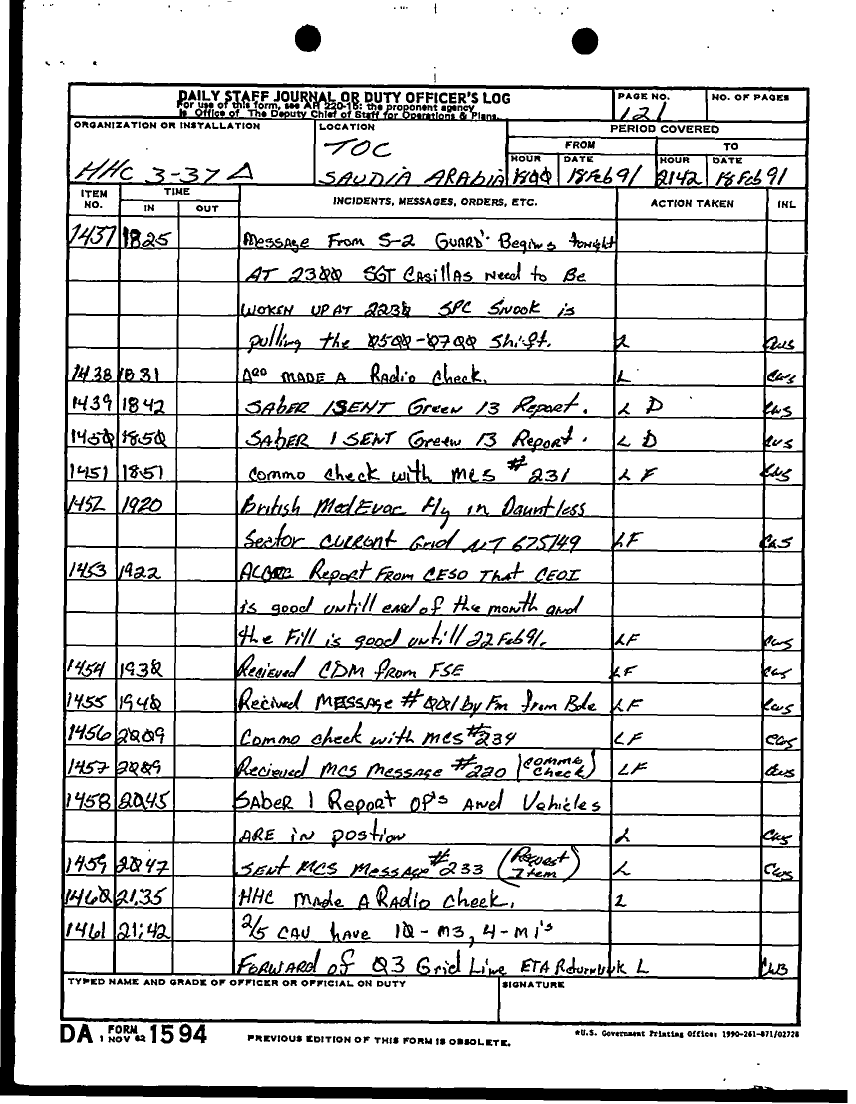 DAILY STAFF JOURNAL OR DUTY OFFICER'S LOG
For use of this form, see AR 220-15; the proponent agency
is Office of The Deputy Chief of Staff for Operations & Plans.
PAGE NO.
121
NO. OF PAGES
ORGANIZATION OR INSTALLATION
HHC 3-37 Δ
LOCATION
TOC
SAUDIA ARABIA
PERIOD COVERED
FROM
TO
HOUR DATE HOUR DATE
1800 18 Feb 91 2142 18 Feb 91
ITEM NO.
TIME
IN OUT
INCIDENTS, MESSAGES, ORDERS, ETC.
ACTION TAKEN
INL
1437 1825 Message From S-2 GUARD Begins tonight
AT 2300 SGT Casillas Need to Be
WOKEN UP AT 2230 SPC Snook is
pulling the 0500-0700 Shift. L CWS
1438 1831 MADE A Radio Check. L CWS
1439 1842 SABER 1 SENT Green 13 Report. L D CWS
1450 1850 SABER 1 SENT Green 13 Report. L D CWS
1451 1851 Commo check with MCS # 231 L F CWS
1452 1920 British MedEvac Fly in Dauntless
Sector CURRONT Grid NT 675149 LF CWS
1453 1922 Report From CESO That CEOI
is good untill end of the month and
the Fill is good untill 22 Feb 91. LF CWS
1454 1930 Recieved CDM from FSE LF CWS
1455 1940 Recived MESSAGE # 001 by Fm from Bde LF CWS
1456 2009 Commo check with MCS #234 LF CWS
1457 2009 Recieved MCS Message #220 (Commo check) LF CWS
1458 2045 SABER 1 Report OP's And Vehicles
ARE in postion L CWS
1459 2047 SENT MCS Message # 233 (Request Item) L CWS
1460 21:35 HHC Made A Radio Check. L
1461 21:42 2/5 CAV have 10 - M3, 4 - M1's
FORWARD of 03 Grid Line ETA Return UNK L CWB
TYPED NAME AND GRADE OF OFFICER OR OFFICIAL ON DUTY
SIGNATURE
DA FORM 1 NOV 62 1594
PREVIOUS EDITION OF THIS FORM IS OBSOLETE.
*U.S. Government Printing Office: 1990-261-871/02728